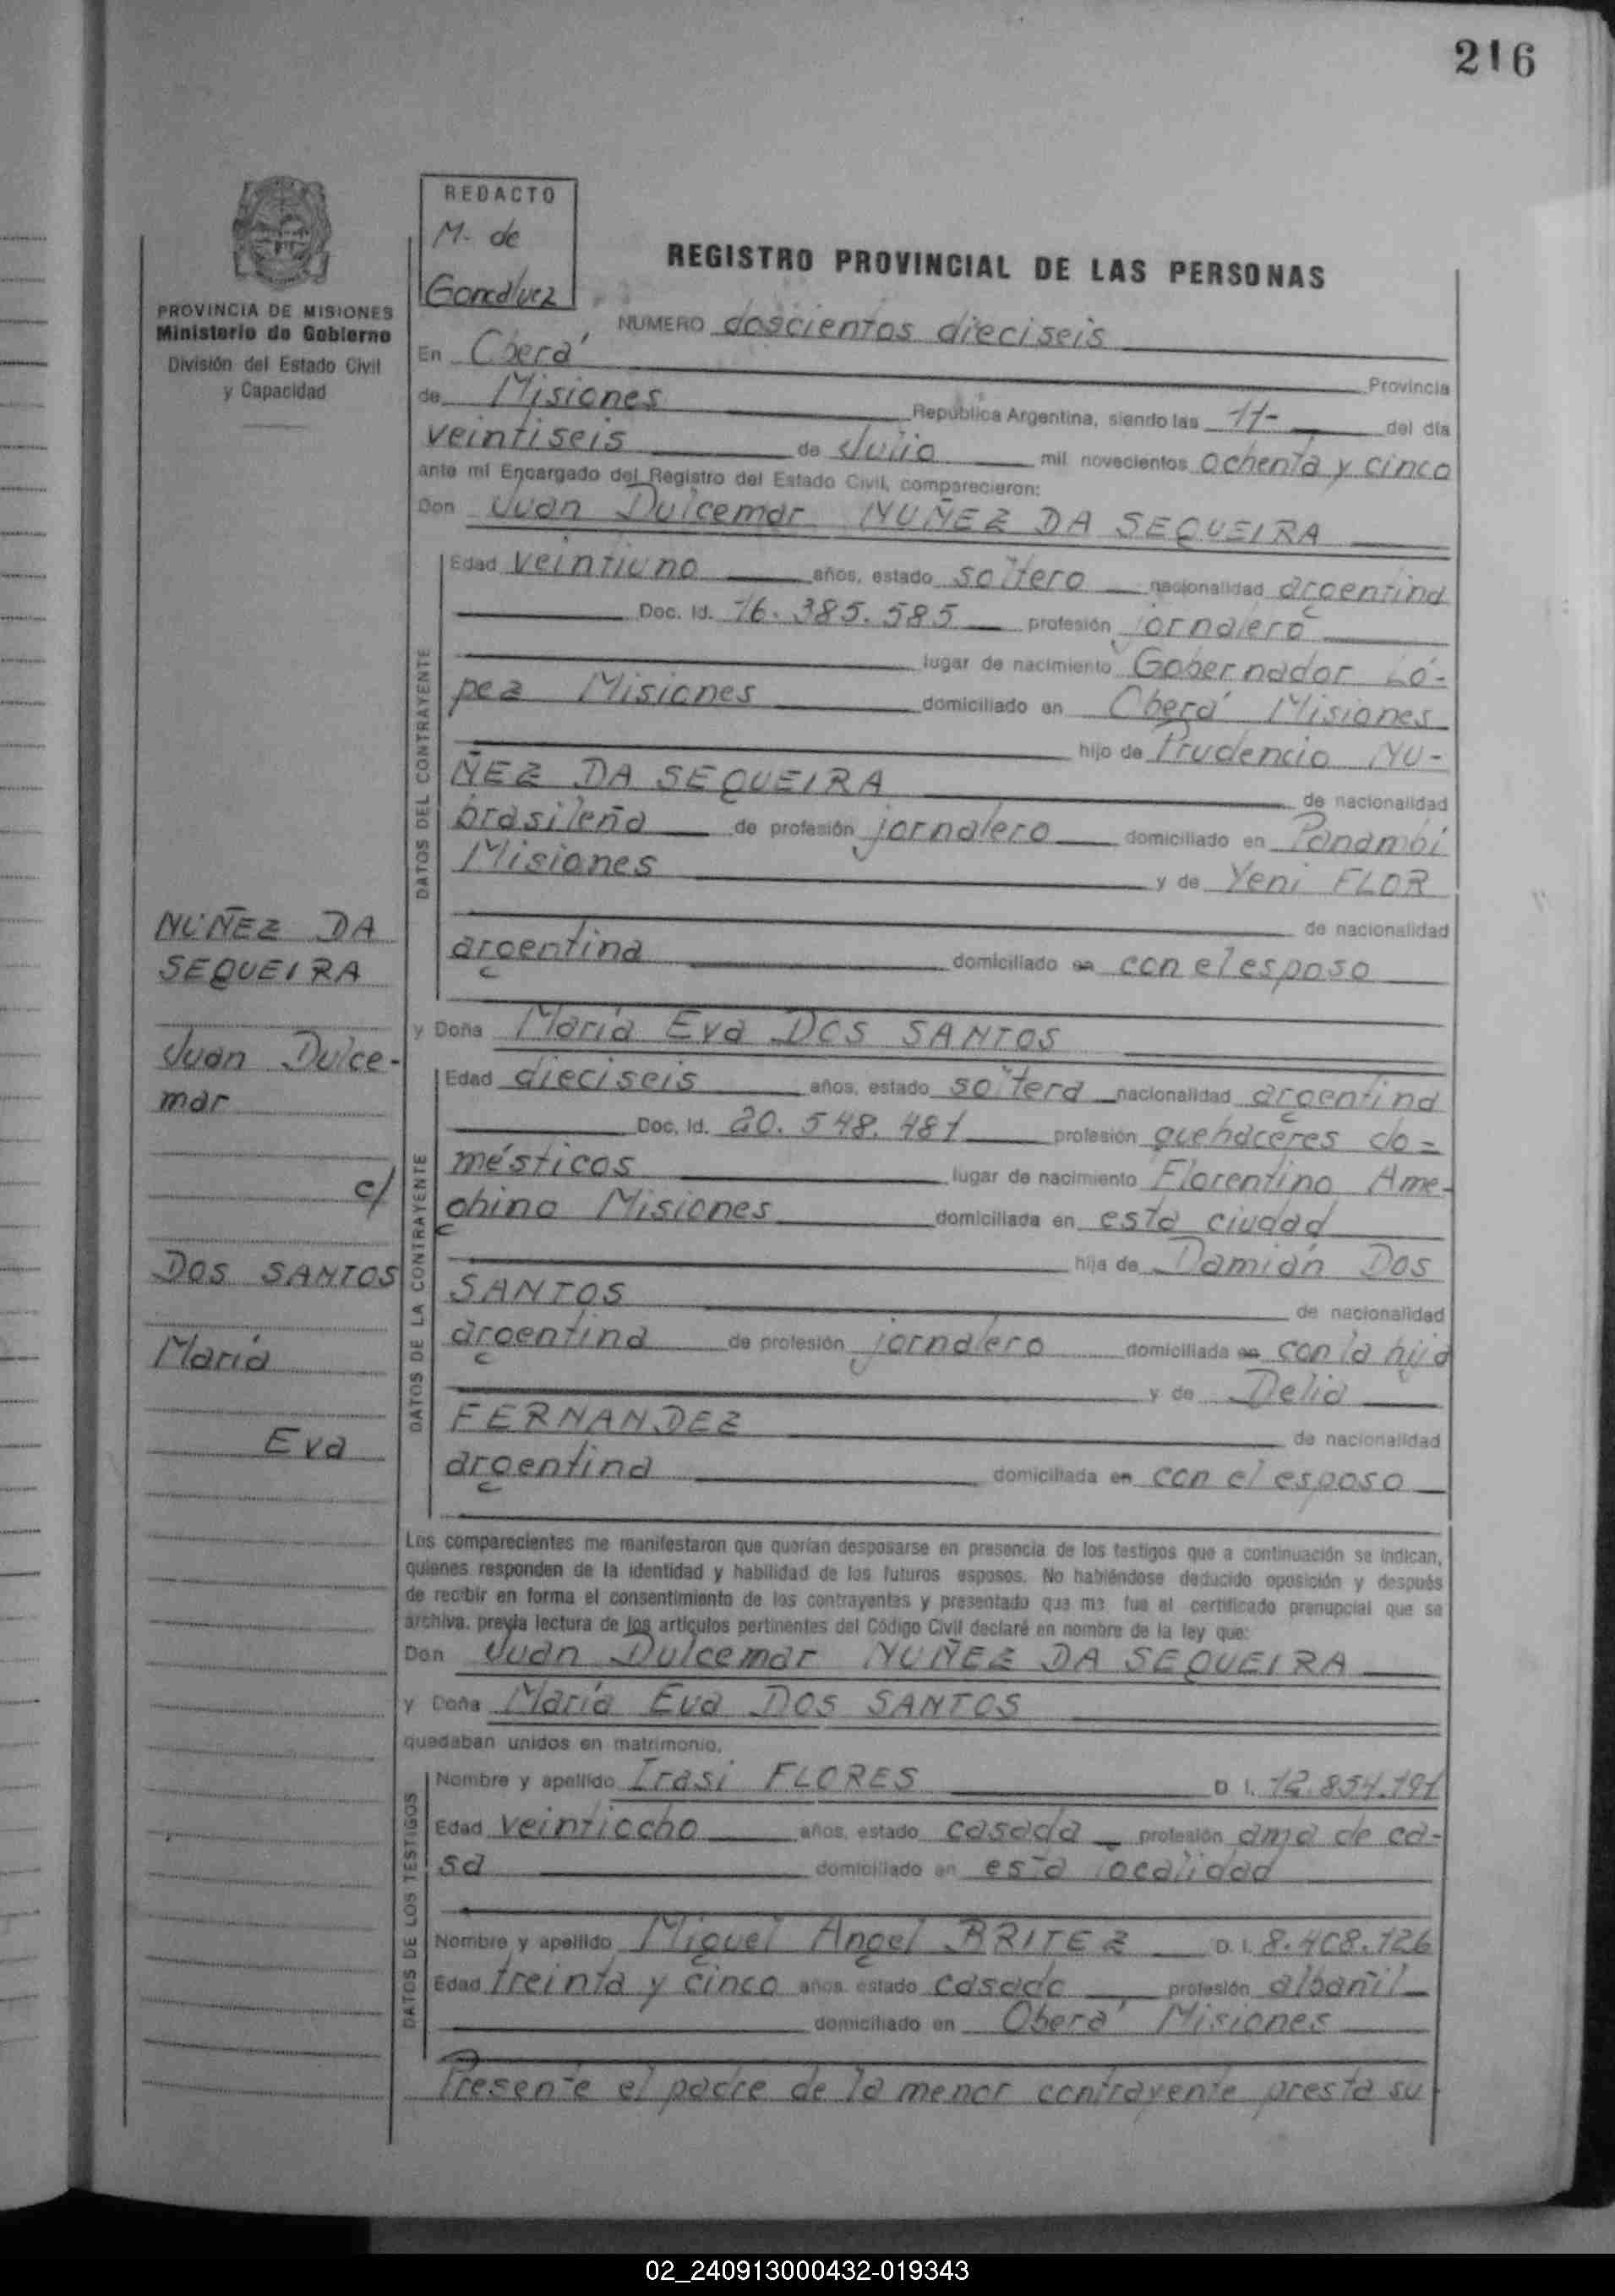 216
REDACTO
M. de
Goncalvez
REGISTRO PROVINCIAL DE LAS PERSONAS
PROVINCIA DE MISIONES
Ministerio de Gobierno
División del Estado Civil
y Capacidad
NUMERO doscientos dieciseis
En Oberá Provincia
de Misiones República Argentina, siendo las 11- del día
veintiseis de Julio mil novecientos ochenta y cinco
ante mí Encargado del Registro del Estado Civil, comparecieron:
Don Juan Dulcemar NUÑEZ DA SEQUEIRA
DATOS DEL CONTRAYENTE
Edad veintiuno años, estado soltero nacionalidad argentina
Doc. Id. 16.385.585 profesión jornalero
lugar de nacimiento Gobernador Ló-
pez Misiones domiciliado en Oberá Misiones
hijo de Prudencio NU-
ÑEZ DA SEQUEIRA de nacionalidad
brasileña de profesión jornalero domiciliado en Panambí
Misiones y de Yeni FLOR
de nacionalidad
argentina domiciliado en con el esposo
y Doña María Eva DOS SANTOS
DATOS DE LA CONTRAYENTE
Edad dieciseis años, estado soltera nacionalidad argentina
Doc. Id. 20.548.481 profesión quehaceres do=
mésticos lugar de nacimiento Florentino Ame-
ghino Misiones domiciliada en esta ciudad
hija de Damián DOS
SANTOS de nacionalidad
argentina de profesión jornalero domiciliada en con la hija
y de Delia
FERNANDEZ de nacionalidad
argentina domiciliada en con el esposo
NUÑEZ DA
SEQUEIRA
Juan Dulce-
mar
c/
DOS SANTOS
María
Eva
Los comparecientes me manifestaron que querían desposarse en presencia de los testigos que a continuación se indican,
quienes responden de la identidad y habilidad de los futuros esposos. No habiéndose deducido oposición y después
de recibir en forma el consentimiento de los contrayentes y presentado que me fue el certificado prenupcial que se
archiva. previa lectura de los artículos pertinentes del Código Civil declaré en nombre de la ley que:
Don Juan Dulcemar NUÑEZ DA SEQUEIRA
y Doña María Eva DOS SANTOS
quedaban unidos en matrimonio.
DATOS DE LOS TESTIGOS
Nombre y apellido Irasi FLORES D. I. 12.854.191
Edad veintiocho años, estado casada profesión ama de ca-
sa domiciliado en esta localidad
Nombre y apellido Miguel Angel BRITEZ D. I. 8.408.126
Edad treinta y cinco años. estado casado profesión albañil
domiciliado en Oberá Misiones
Presente el padre de la menor contrayente presta su
02_240913000432-019343